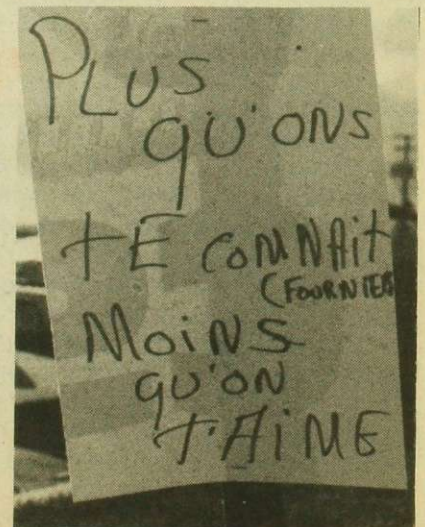 PLUS
QU'ONS
TE CONNAIT
(FOURNIER)
MOINS
QU'ON
T'AIME